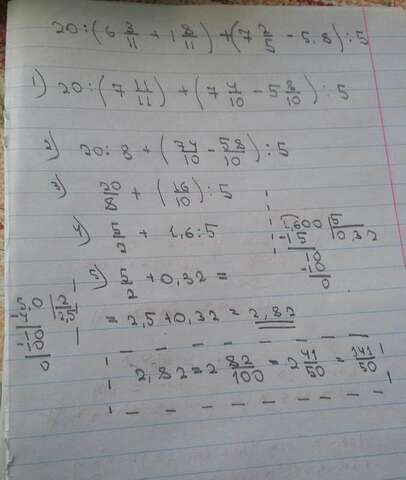 20:(6 3/11 + 1 8/11) + (7 2/5 - 5.8):5
1) 20:(7 11/11) + (7 4/10 - 5 8/10):5
2) 20:8 + (74/10 - 58/10):5
3) 20/8 + (16/10):5
4) 5/2 + 1,6:5
1,600 5
-15 0,32
10
-10
0
5) 5/2 + 0,32 =
5,0 2
-4 2,5
10
-10
0
= 2,5+0,32 = 2,82
2,82 = 2 82/100 = 2 41/50 = 141/50